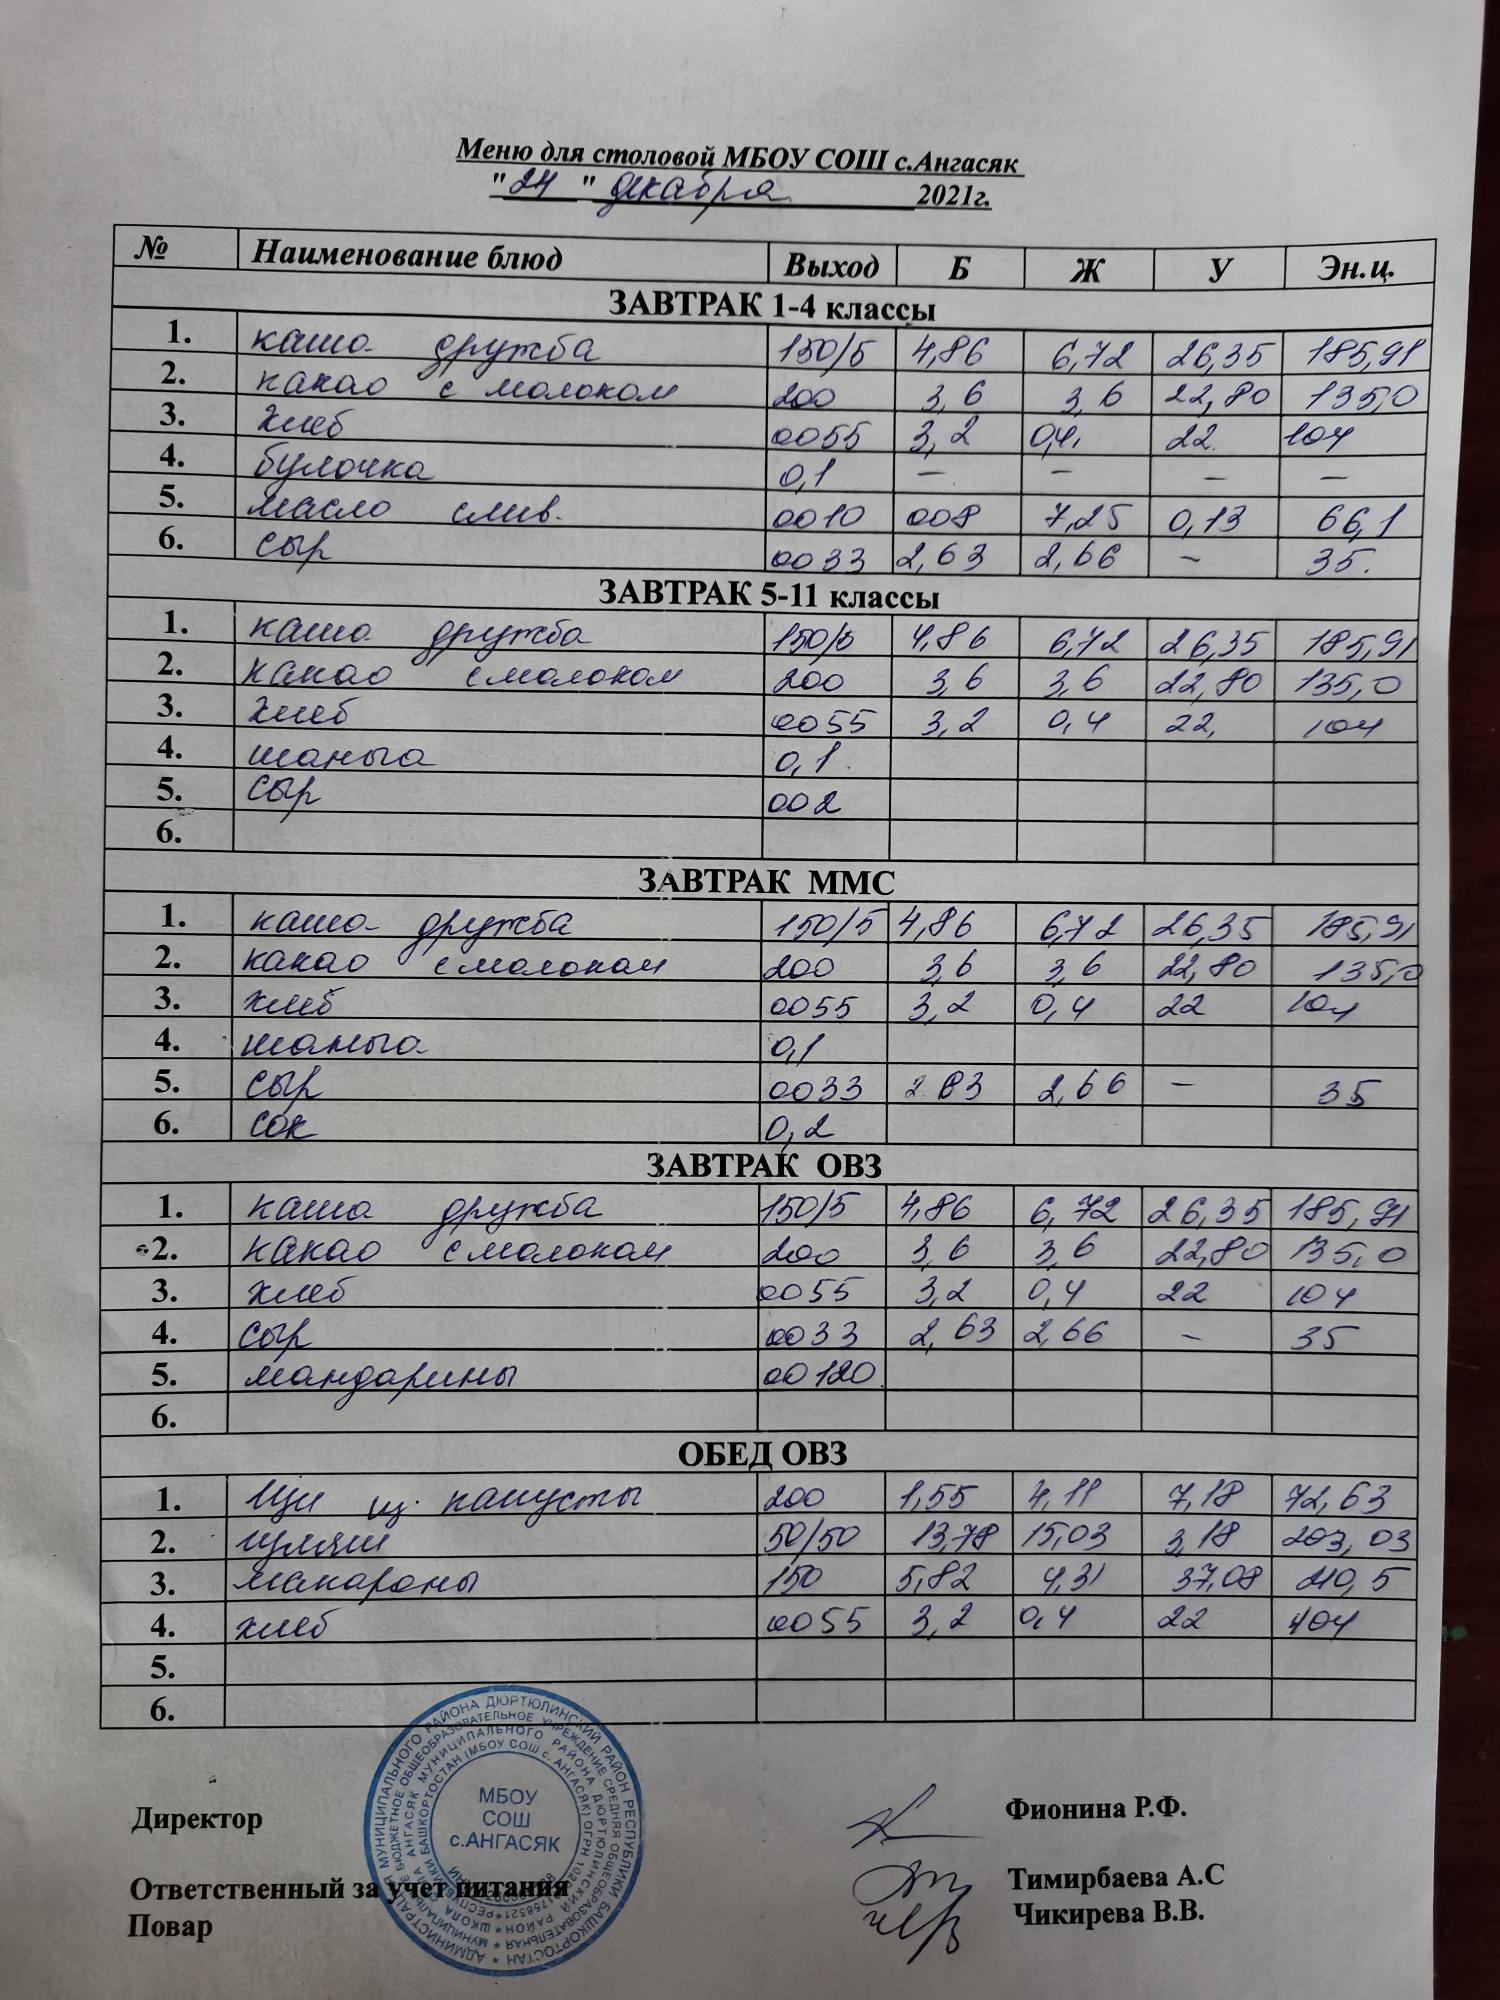 Меню для столовой МБОУ СОШ с.Ангасяк
"24" декабря 2021г.
№ Наименование блюд Выход Б Ж У Эн.ц.
ЗАВТРАК 1-4 классы
1. каша дружба 150/5 4,86 6,72 26,35 185,91
2. какао с молоком 200 3,6 3,6 22,80 135,0
3. хлеб 0055 3,2 0,4 22 104
4. булочка 0,1 – – – –
5. масло слив. 0010 008 7,25 0,13 66,1
6. сыр 0033 2,63 2,66 – 35.
ЗАВТРАК 5-11 классы
1. каша дружба 150/5 4,86 6,72 26,35 185,91
2. какао с молоком 200 3,6 3,6 22,80 135,0
3. хлеб 0055 3,2 0,4 22, 104
4. шаньга 0,1
5. сыр 002
6.
ЗАВТРАК ММС
1. каша дружба 150/5 4,86 6,72 26,35 185,91
2. какао с молоком 200 3,6 3,6 22,80 135,0
3. хлеб 0055 3,2 0,4 22 104
4. шаньга 0,1
5. сыр 0033 2.63 2,66 – 35
6. сок 0,2
ЗАВТРАК ОВЗ
1. каша дружба 150/5 4,86 6,72 26,35 185,91
2. какао с молоком 200 3,6 3,6 22,80 135,0
3. хлеб 0055 3,2 0,4 22 104
4. сыр 0033 2,63 2,66 – 35
5. мандарины 00120
6.
ОБЕД ОВЗ
1. Щи из капусты 200 1,55 4,11 7,18 72,63
2. гуляш 50/50 13,78 15,03 3,18 203,03
3. макароны 150 5,82 4,31 37,08 210,5
4. хлеб 0055 3,2 0,4 22 104
5.
6.
МБОУ
СОШ
с.АНГАСЯК
Директор Фионина Р.Ф.
Ответственный за учет питания Тимирбаева А.С
Повар Чикирева В.В.